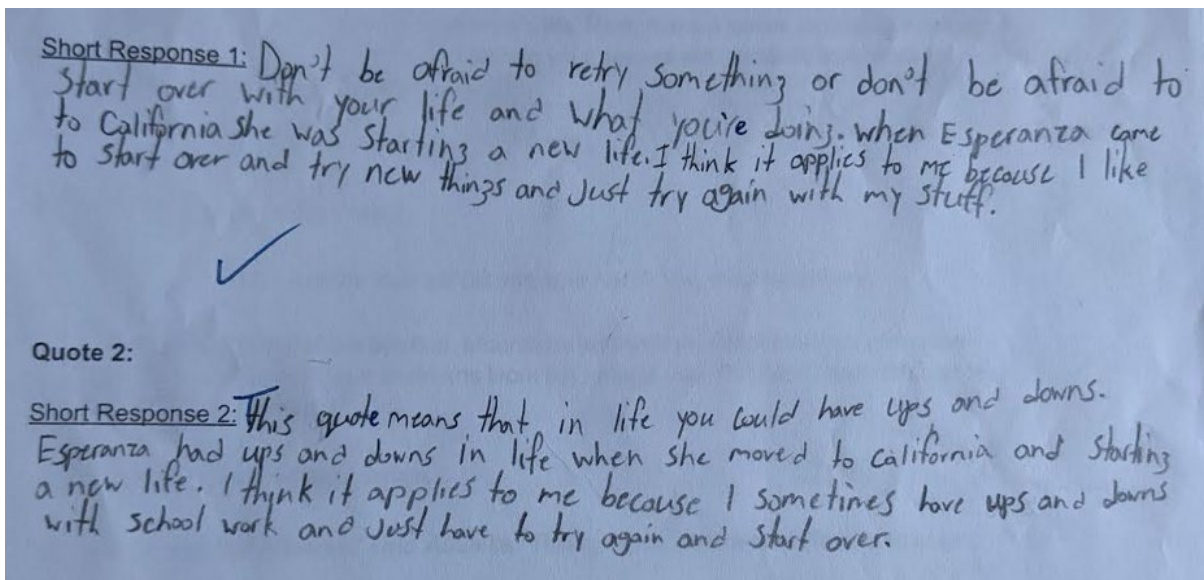 Short Response 1: Don't be afraid to retry something or don't be afraid to
start over with your life and what you're doing. when Esperanza came
to California she was starting a new life. I think it applies to me because I like
to start over and try new things and Just try again with my stuff.
Quote 2:
Short Response 2: This quote means that in life you could have ups and downs.
Esperanza had ups and downs in life when she moved to california and starting
a new life. I think it applies to me because I sometimes have ups and downs
with school work and Just have to try again and start over.